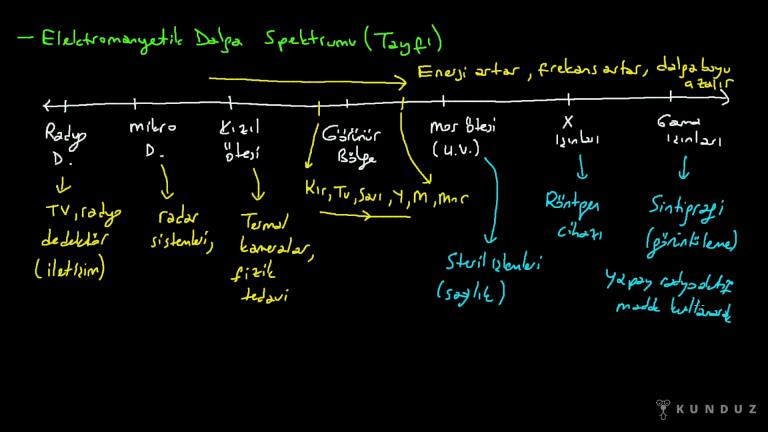 - Elektromanyetik Dalga Spektrumu (Tayfı)
Enerji artar, frekans artar, dalga boyu
azalır
Radyo
D.
mikro
D.
Kızıl
ötesi
Görünür
Bölge
mor ötesi
(U.V.)
X
ışınları
Gama
ışınları
TV, radyo
dedektör
(iletişim)
radar
sistemleri,
Termal
kameralar,
fizik
tedavi
Kır, Tu, Sarı, Y, M, Mor
Steril işlemleri
(sağlık)
Röntgen
cihazı
Sintigrafi
(görüntüleme)
Yapay radyoaktif
madde kullanarak
KUNDUZ